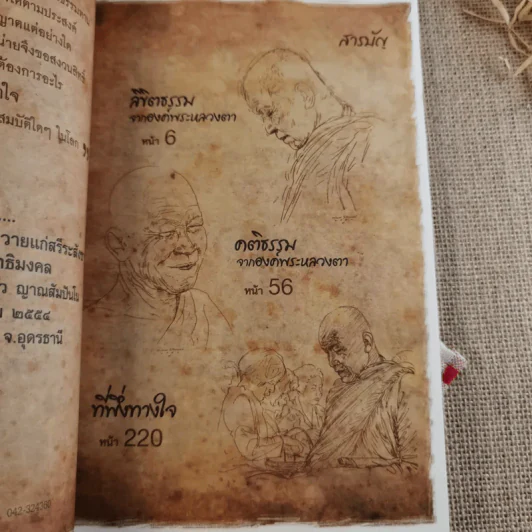 ได้ตามประสงค์
ญาตแต่อย่างใด
น่ายจึงขอสงวนสิทธิ์
ต้องการอะไร
สมบัติใดๆ ในโลก
....
วายแก่สรีระสัง
าธิมงคล
ว ญาณสัมปันโน
พ ๒๕๕๔
จ.อุดรธานี
สารบัญ
ลิขิตธรรม
จากองค์พระหลวงตา
หน้า 6
คติธรรม
จากองค์พระหลวงตา
หน้า 56
ที่พึ่งทางใจ
หน้า 220